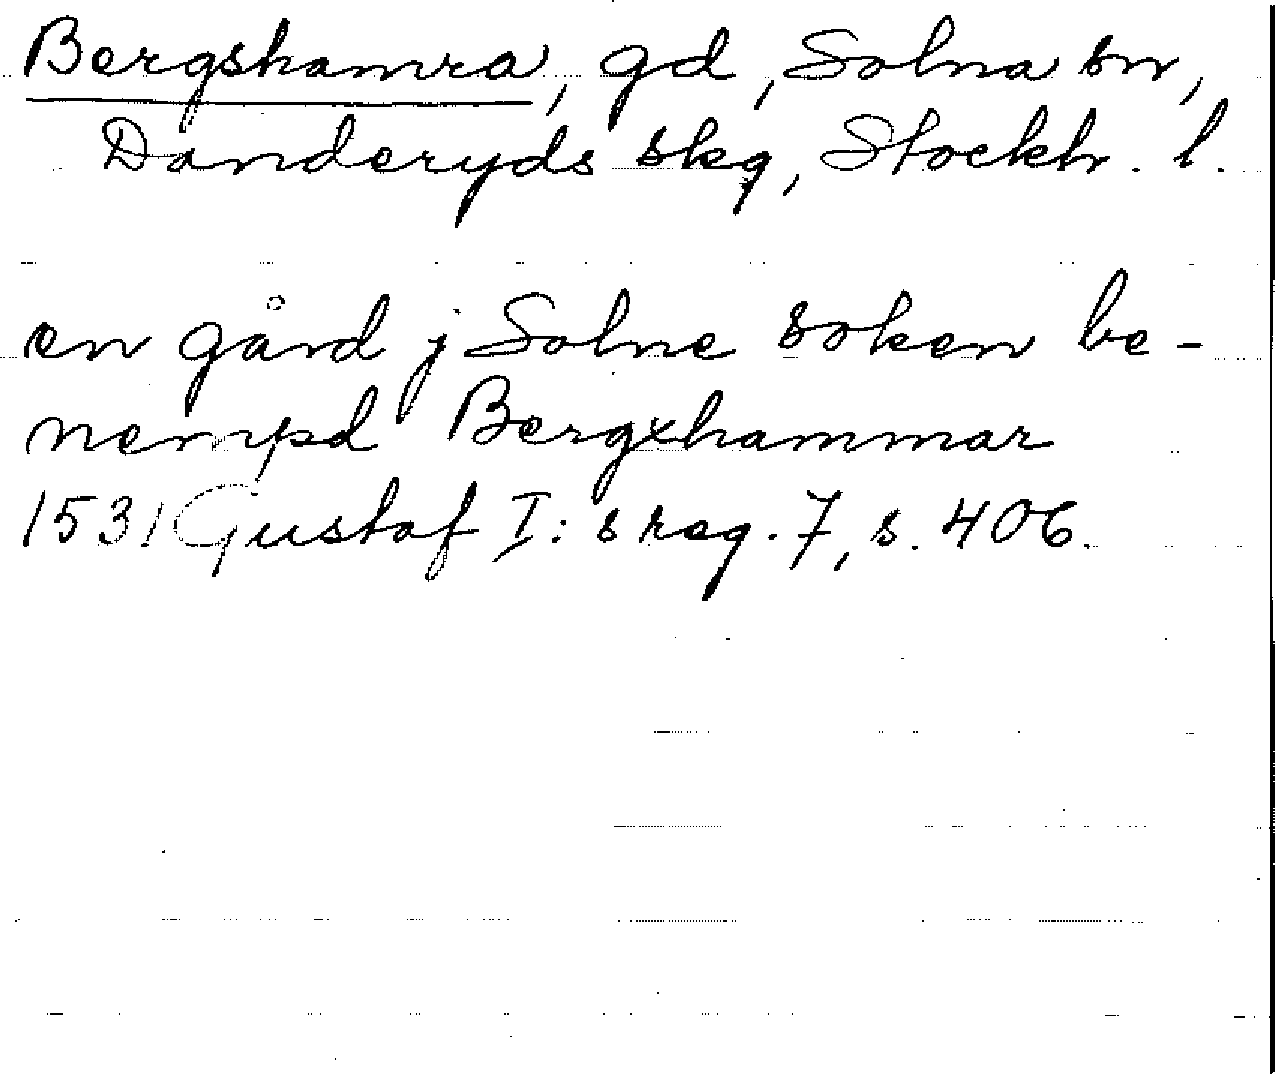 Bergshamra, gd, Solna sn,
Danderyds skg, Stockh. l.
en gård j Solne soken be-
nempd Bergxhammar
1531 Gustaf I:s reg. 7, s. 406.